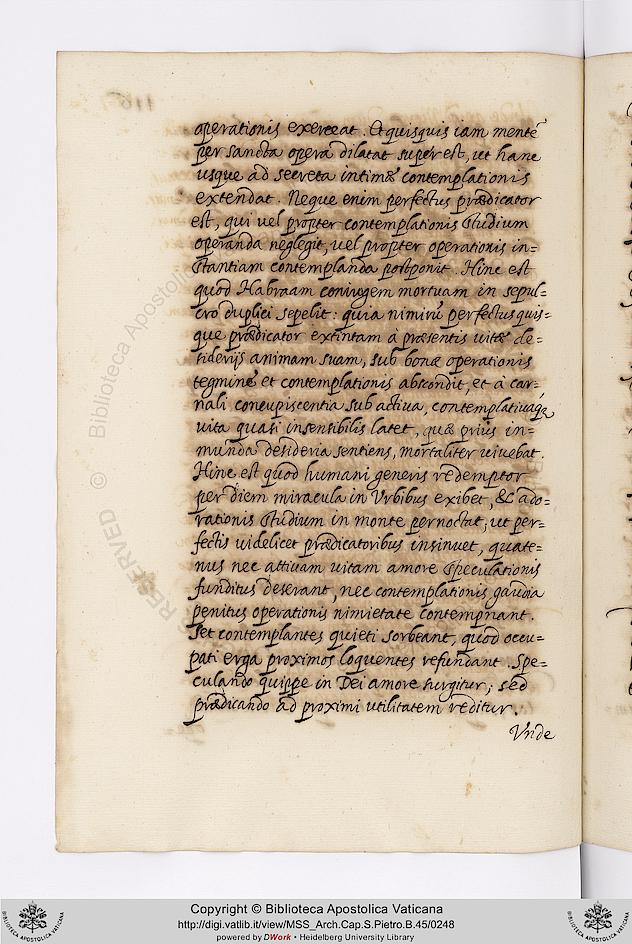 operationis exerceat. Et quisquis iam mentē
per sancta opera dilatat super est, ut hanc
usque ad secreta intimæ contemplationis
extendat. Neque enim perfectus prædicator
est, qui vel propter contemplationis studium
operanda neglegit, vel propter operationis in=
stantiam contemplanda postponit. Hinc est
quod Habraam coniugem mortuam in sepul=
cro duplici sepelit: quia nimirū perfectus quis=
que prædicator extintam à præsentis vitæ de=
siderijs animam suam, sub bonæ operationis
tegmine et contemplationis abscondit, et a car=
nali concupiscentia sub activa, contemplativaq;
vita quasi insensibilis latet, quæ prius in=
munda desideria sentiens, mortaliter vivebat.
Hinc est quod humani generis redemptor
per diem miracula in Vrbibus exibet, & ado=
rationis studium in monte pernoctat, ut per=
fectis videlicet prædicatoribus insinuet, quate=
nus nec activam vitam amore speculationis
funditus deserant, nec contemplationis gaudia
penitus operationis nimietate contempnant.
Set contemplantes quieti sorbeant, quod occu=
pati erga proximos loquentes refundant. Spe=
culando quippe in Dei amore surgitur; sed
prædicando ad proximi utilitatem reditur.
Vnde
Copyright © Biblioteca Apostolica Vaticana
http://digi.vatlib.it/view/MSS_Arch.Cap.S.Pietro.B.45/0248
powered by DWork • Heidelberg University Library